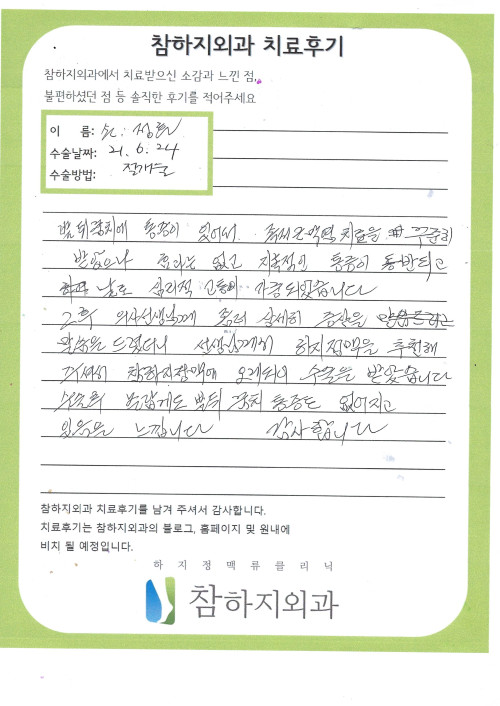 참하지외과 치료후기
참하지외과에서 치료받으신 소감과 느낀 점,
불편하셨던 점 등 솔직한 후기를 적어주세요
이 름:
수술날짜: 21. 6. 24
수술방법:
발뒤꿈치에 통증이 있어서 치료를 꾸준히
받았으나 효과는 없고 지속적인 통증이 동반되고
날로 심리적 고통이 가중되었습니다
그후 의사선생님께 좀더 상세히 증상을
말씀을 드렸더니 선생님께서 하지정맥을 추천해
참하지정맥에 오게되어 수술을 받았습니다
수술후 놀랍게도 발뒤꿈치 통증도 없어지고
있음을 느낍니다 감사합니다
참하지외과 치료후기를 남겨 주셔서 감사합니다.
치료후기는 참하지외과의 블로그, 홈페이지 및 원내에
비치 될 예정입니다.
하지정맥류클리닉
참하지외과